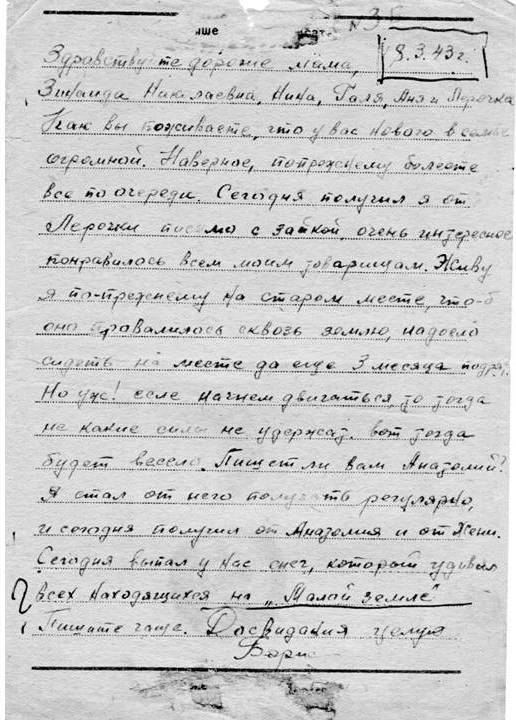 № 35
8.3.43 г.
Здравствуйте дорогие мама,
Зинаида Николаевна, Нина, Галя, Аня и Лерочка
Как вы поживаете, что у вас нового в семье
огромной. Наверное, попрежнему болеете
все по очереди. Сегодня получил я от
Лерочки письмо с зайкой, очень интересное
понравилось всем моим товарищам. Живу
я по-прежнему на старом месте, что-б
оно правалилось сквозь землю, надоело
сидеть на месте да еще 3 месяца подряд.
Но уж! если начнем двигаться, то тогда
не какие силы не удержат. вот тогда
будет весело. Пишет ли вам Анатолий?
Я стал от него получать регулярно,
и сегодня получил от Анатолия и от Жени.
Сегодня выпал у нас снег, который удивил
всех находящихся на „Малой земле"
Пишите чаще. Досвидания целую
Борис